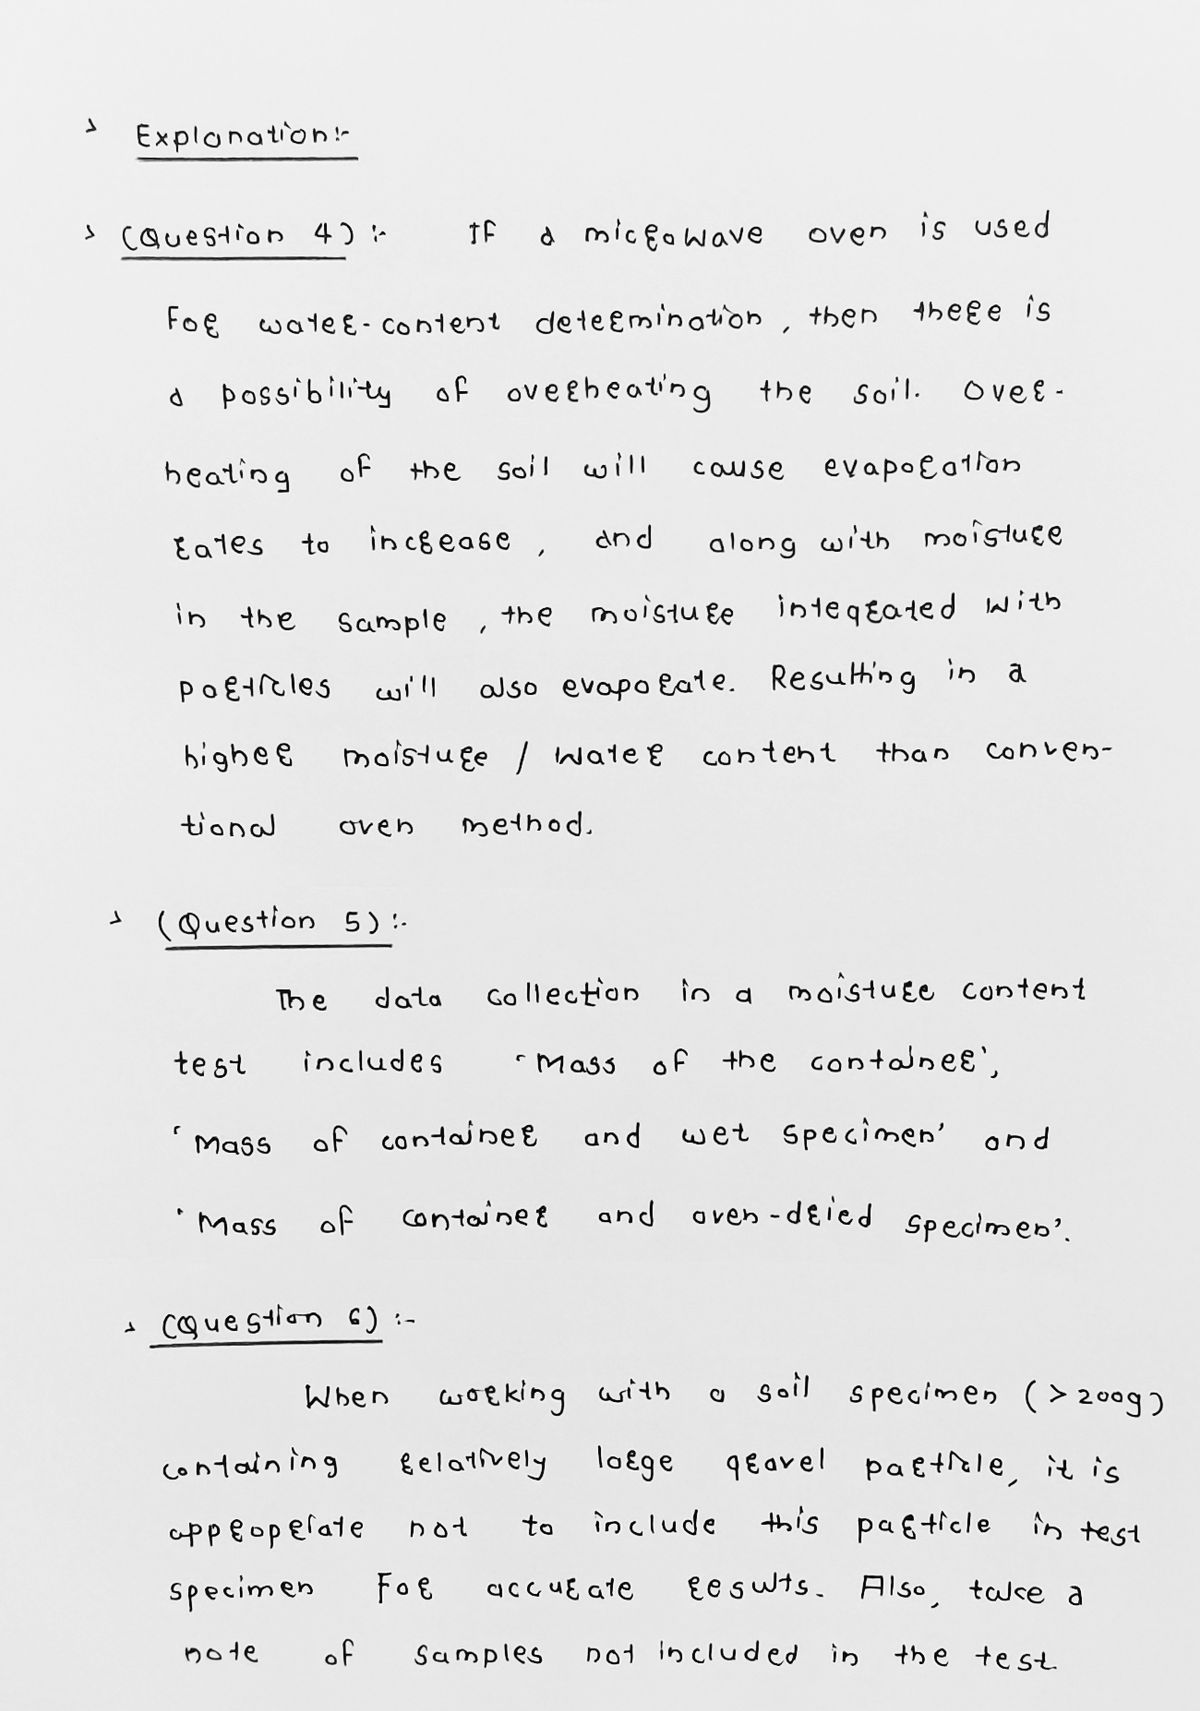 > Explanation:-
> (Question 4) :- If a microwave oven is used
For water-content determination, then there is
a possibility of overheating the soil. Over-
heating of the soil will cause evaporation
rates to increase, and along with moisture
in the sample, the moisture integrated with
particles will also evaporate. Resulting in a
higher moisture / water content than conven-
tional oven method.
> (Question 5) :-
The data collection in a moisture content
test includes 'Mass of the container',
'Mass of container and wet specimen' and
'Mass of container and oven-dried specimen'.
> (Question 6) :-
When working with a soil specimen (>200g)
containing relatively large gravel particle, it is
appropriate not to include this particle in test
specimen For accurate results. Also, take a
note of samples not included in the test.